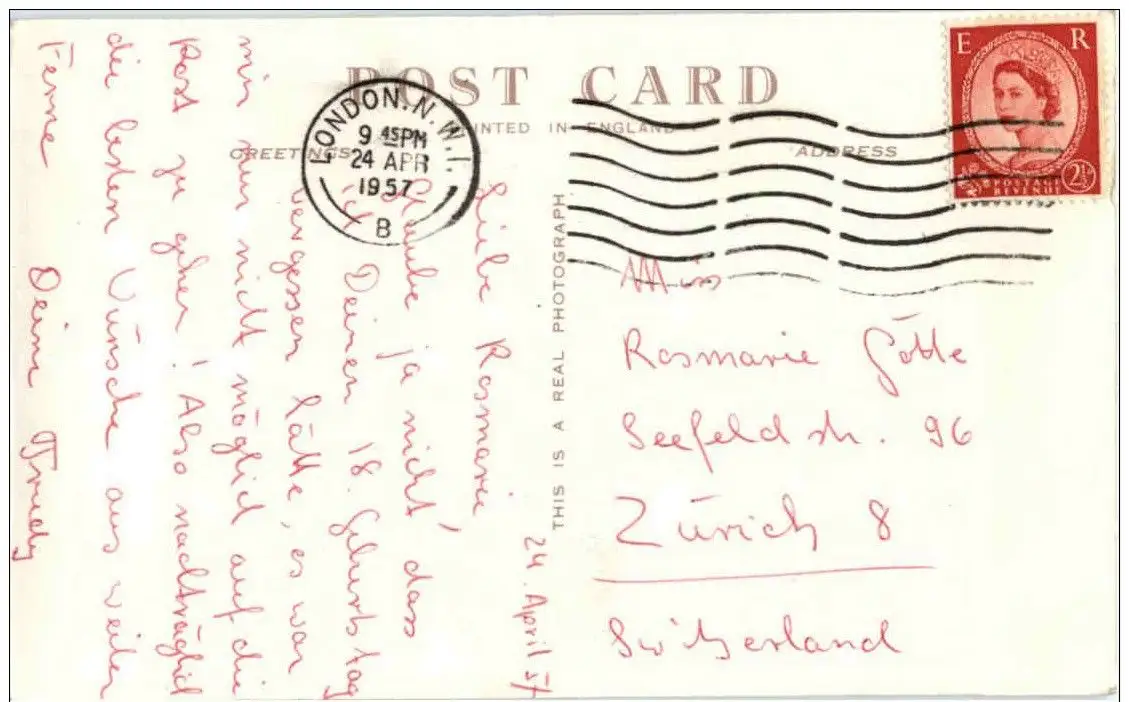 POST CARD
PRINTED IN ENGLAND
GREETINGS
ADDRESS
LONDON. N.W.1.
9 45PM
24 APR
1957
B
E R
POSTAGE
REVENUE
2½
THIS IS A REAL PHOTOGRAPH
24. April 57
Liebe Rosmarie,
Glaube ja nicht, dass
ich Deinen 18. Geburtstag
vergessen hätte, es war
mir nur nicht möglich auf die
Post zu gehen! Also nachträglich
die besten Wünsche aus weiter
Ferne Deine Trudy
Miss
Rosmarie Götte
Seefeldstr. 96
Zürich 8
Switzerland